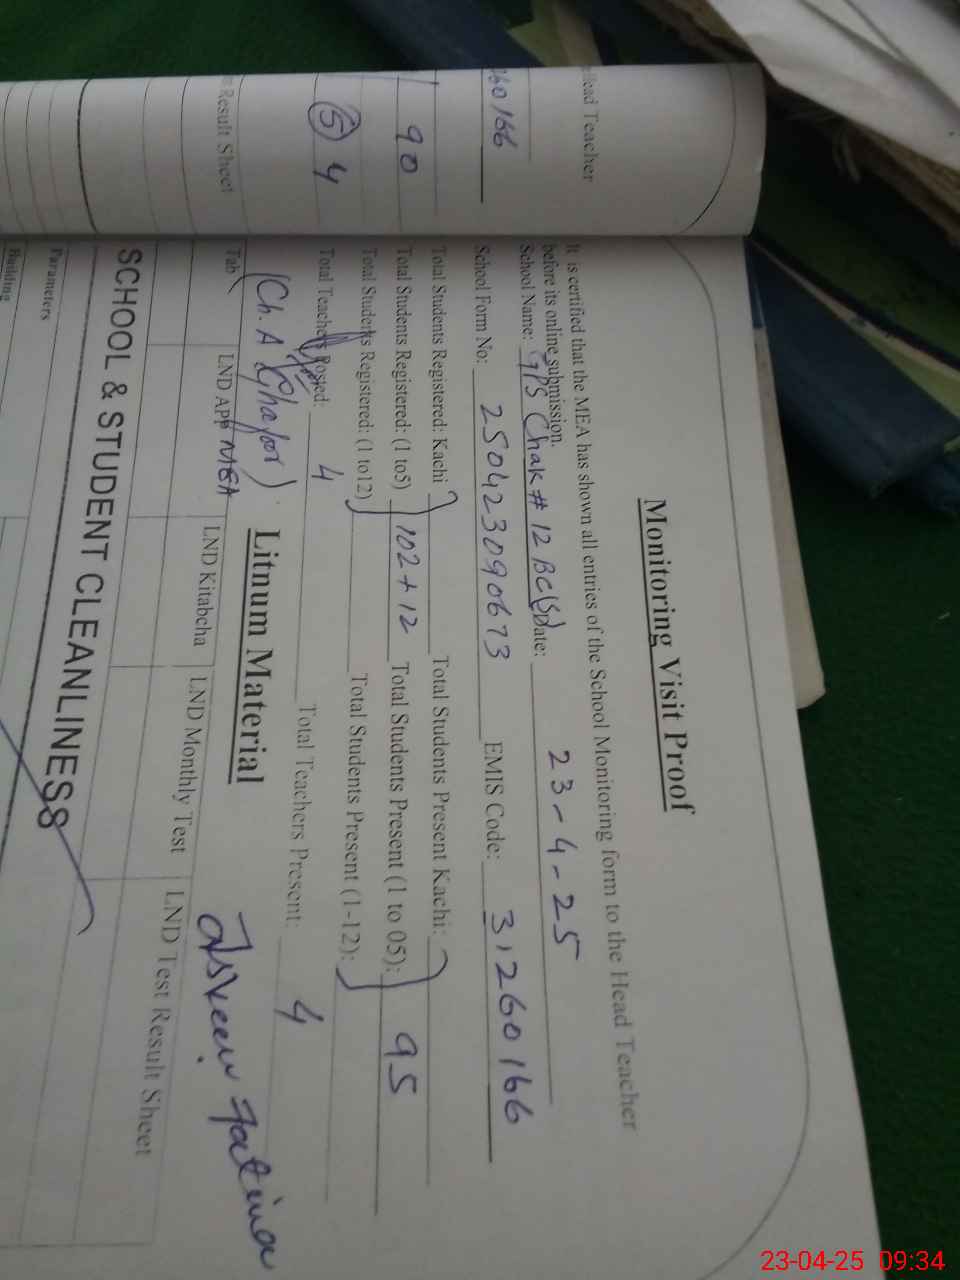 Head Teacher
260166
90
5 4
Result Sheet
Monitoring Visit Proof
It is certified that the MEA has shown all entries of the School Monitoring form to the Head Teacher
before its online submission.
School Name: GPS Chak # 12 BC(S) Date: 23-4-25
School Form No: 250423090673 EMIS Code: 31260166
Total Students Registered: Kachi Total Students Present Kachi:
Total Students Registered: (1 to5) 102+12 Total Students Present (1 to 05): 95
Total Students Registered: (1 to12) Total Students Present (1-12):
Total Teachers Posted: 4 Total Teachers Present: 4
(Ch. A Ghafoor)
MEA
Litnum Material
Fatima
Tab LND App LND Kitabcha LND Monthly Test LND Test Result Sheet
SCHOOL & STUDENT CLEANLINESS
Parameters
Building
23-04-25 09:34